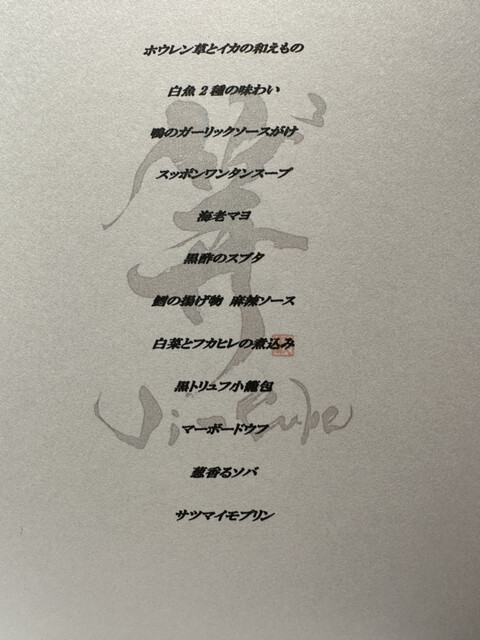 ホウレン草とイカの和えもの
白魚2種の味わい
鴨のガーリックソースがけ
スッポンワンタンスープ
海老マヨ
黒酢のスブタ
鱈の揚げ物 麻辣ソース
白菜とフカヒレの煮込み
黒トリュフ小籠包
マーボードウフ
葱香るソバ
サツマイモプリン